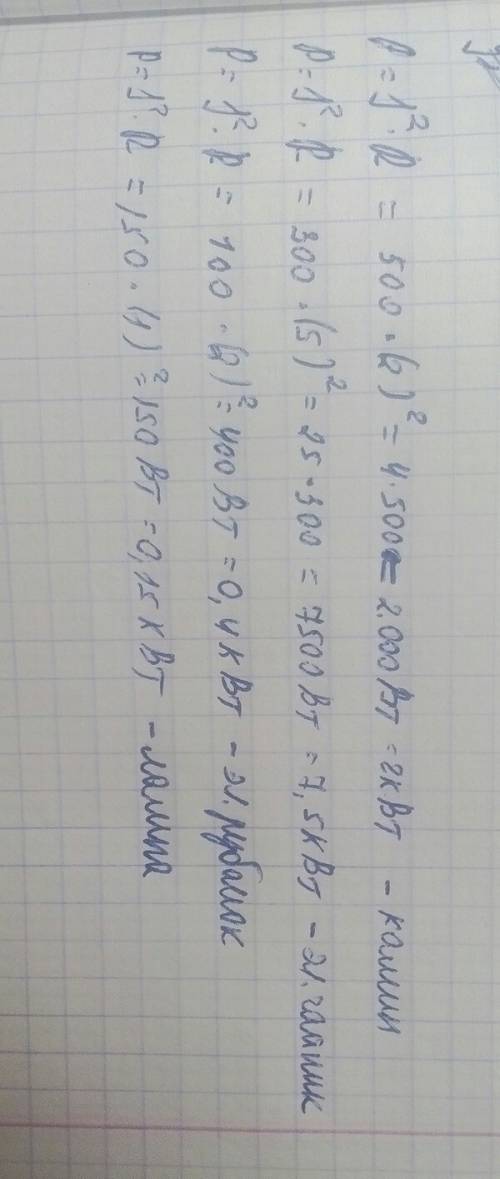 P = I² · R = 500 · (2)² = 4 · 500 = 2.000 Вт = 2 кВт – камин
P = I² · R = 300 · (5)² = 25 · 300 = 7500 Вт = 7,5 кВт – эл. чайник
P = I² · R = 100 · (2)² = 400 Вт = 0,4 кВт – эл. рубанок
P = I² · R = 150 · (1)² = 150 Вт = 0,15 кВт – лампа